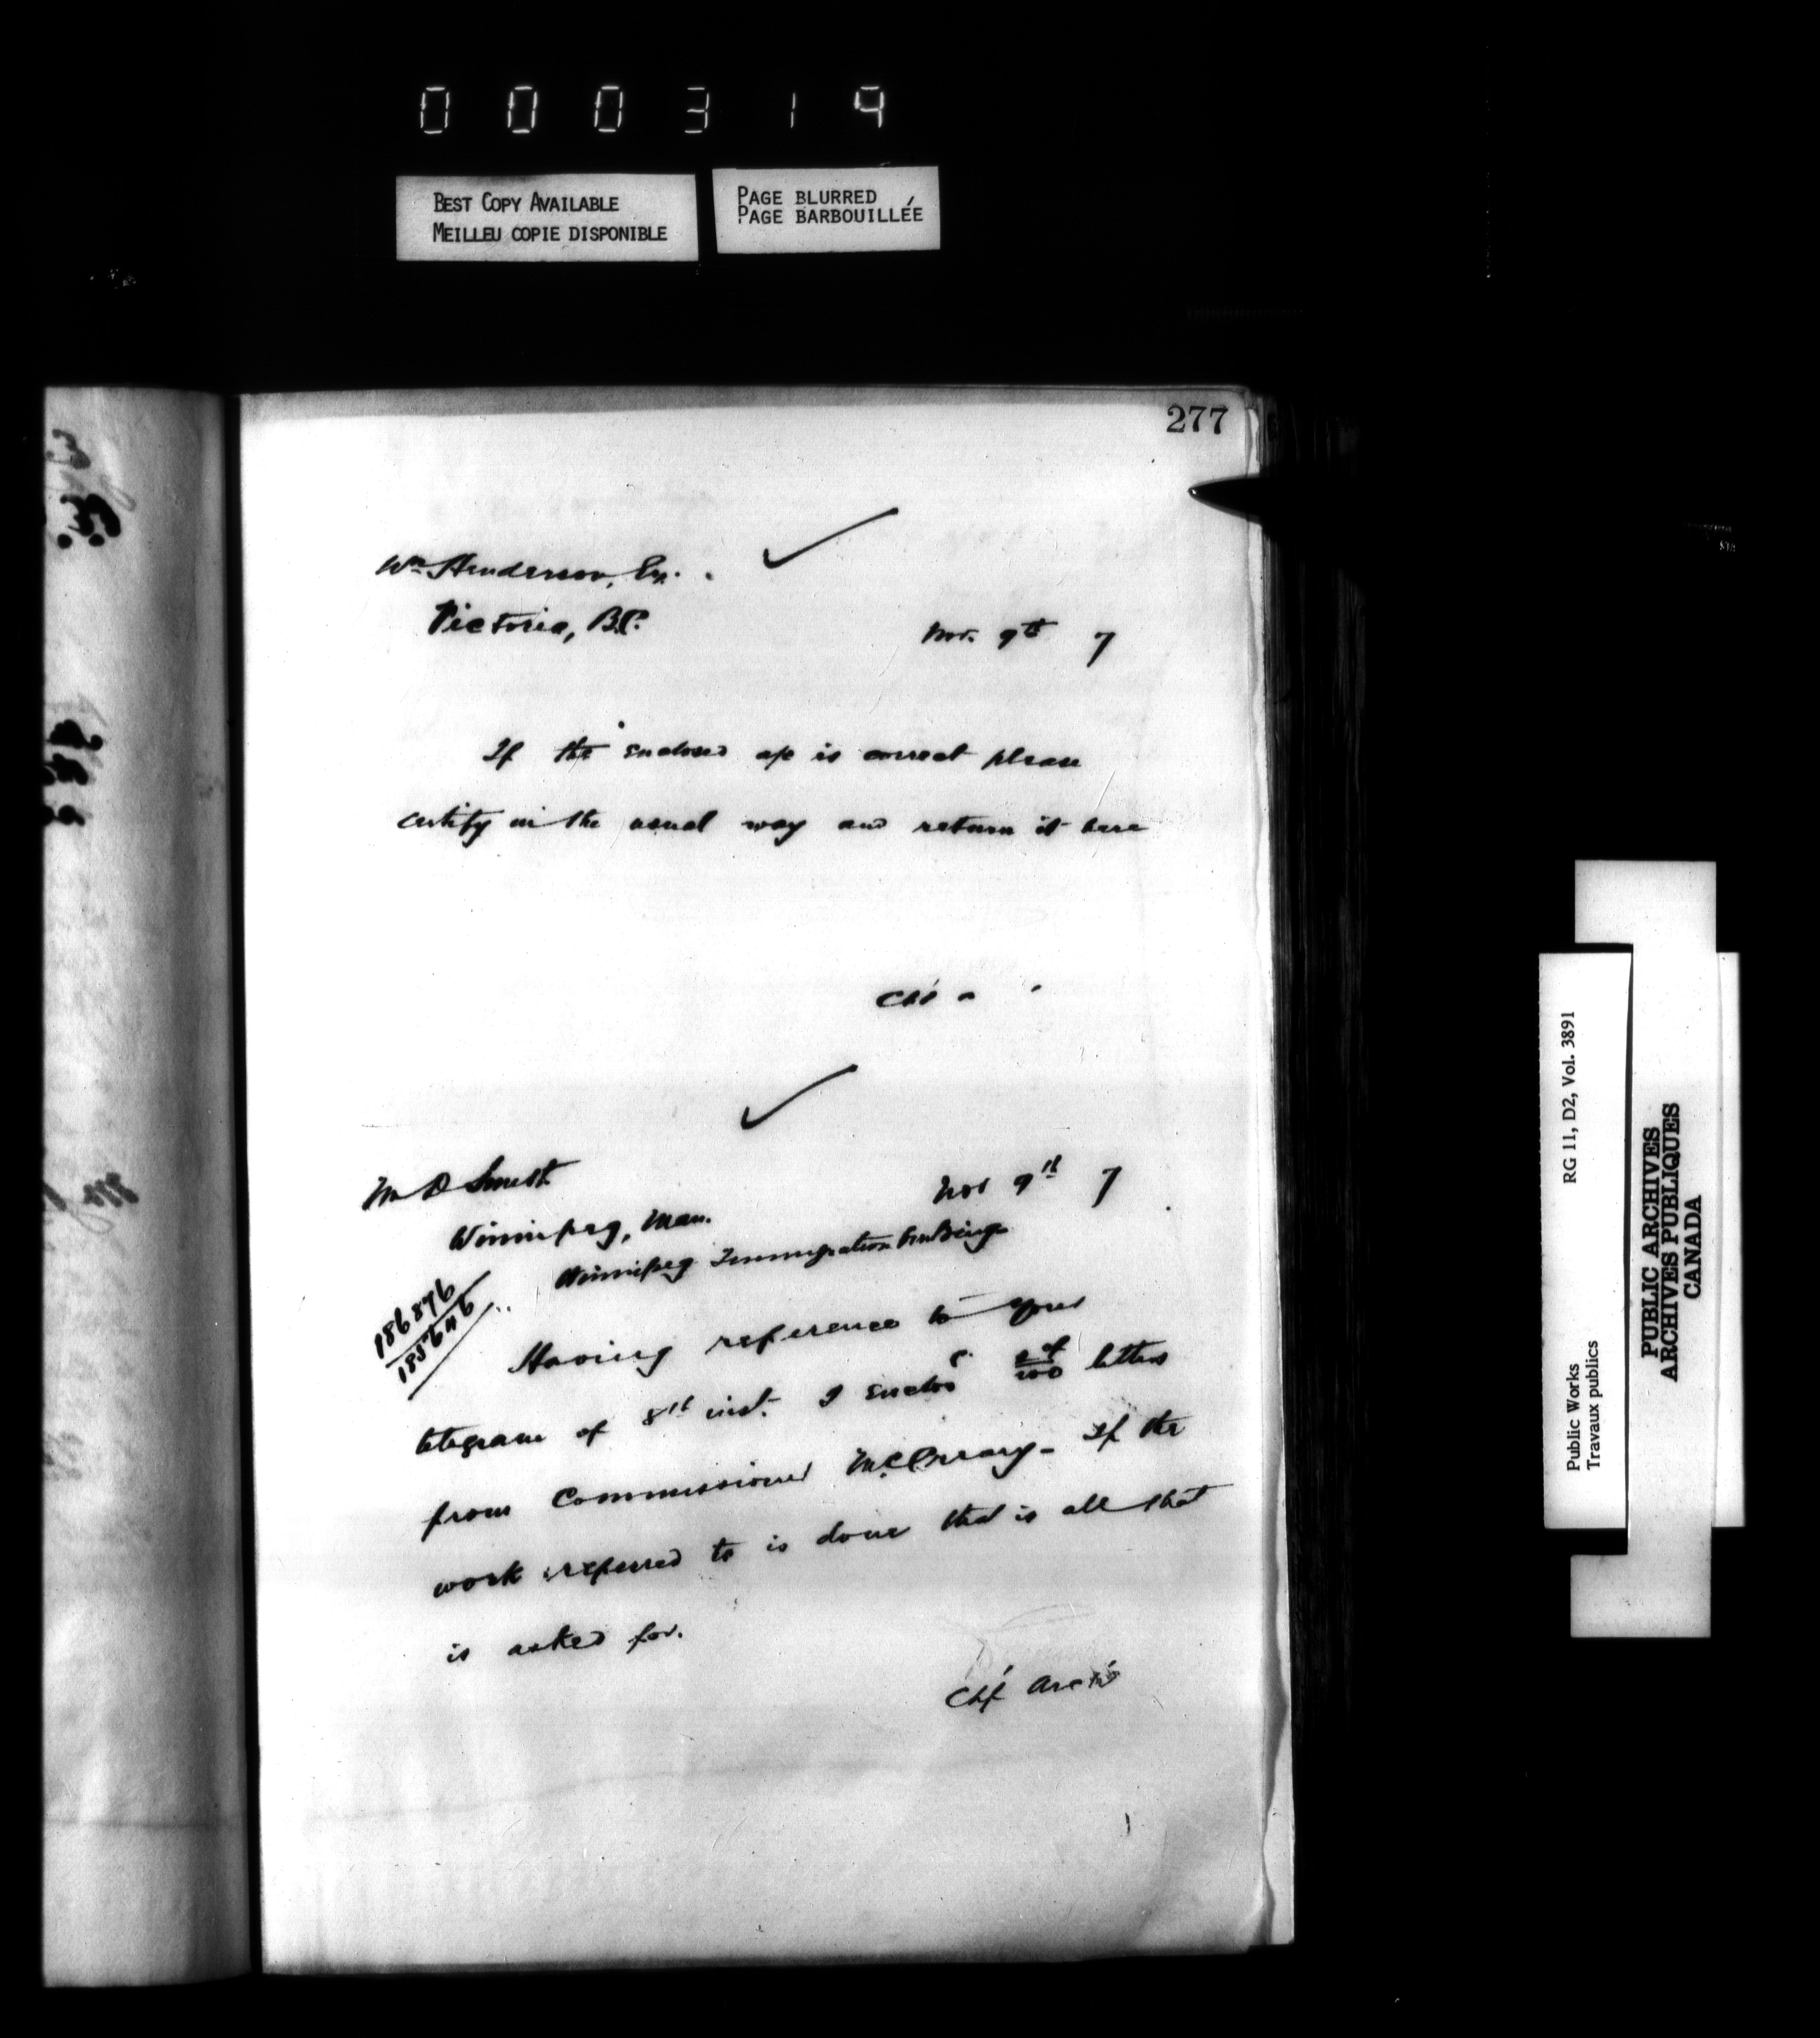 000319
BEST COPY AVAILABLE
MEILLEU COPIE DISPONIBLE
PAGE BLURRED
PAGE BARBOUILLÉE
277
Wm Henderson, Esq.
Victoria, B.C.
Nov. 9th 7
If the enclosed a/c is correct please
certify in the usual way and return it here
W D Smith
Nov 9th 7
Winnipeg, Man.
Winnipeg Immigration building
186876
Having reference to your
telegram of 8th inst. I enclose letters
from Commissioner McCreary - If the
work referred to is done that is all that
is asked for.
Chf Archt
RG 11, D2, Vol. 3891
Public Works
Travaux publics
PUBLIC ARCHIVES
ARCHIVES PUBLIQUES
CANADA